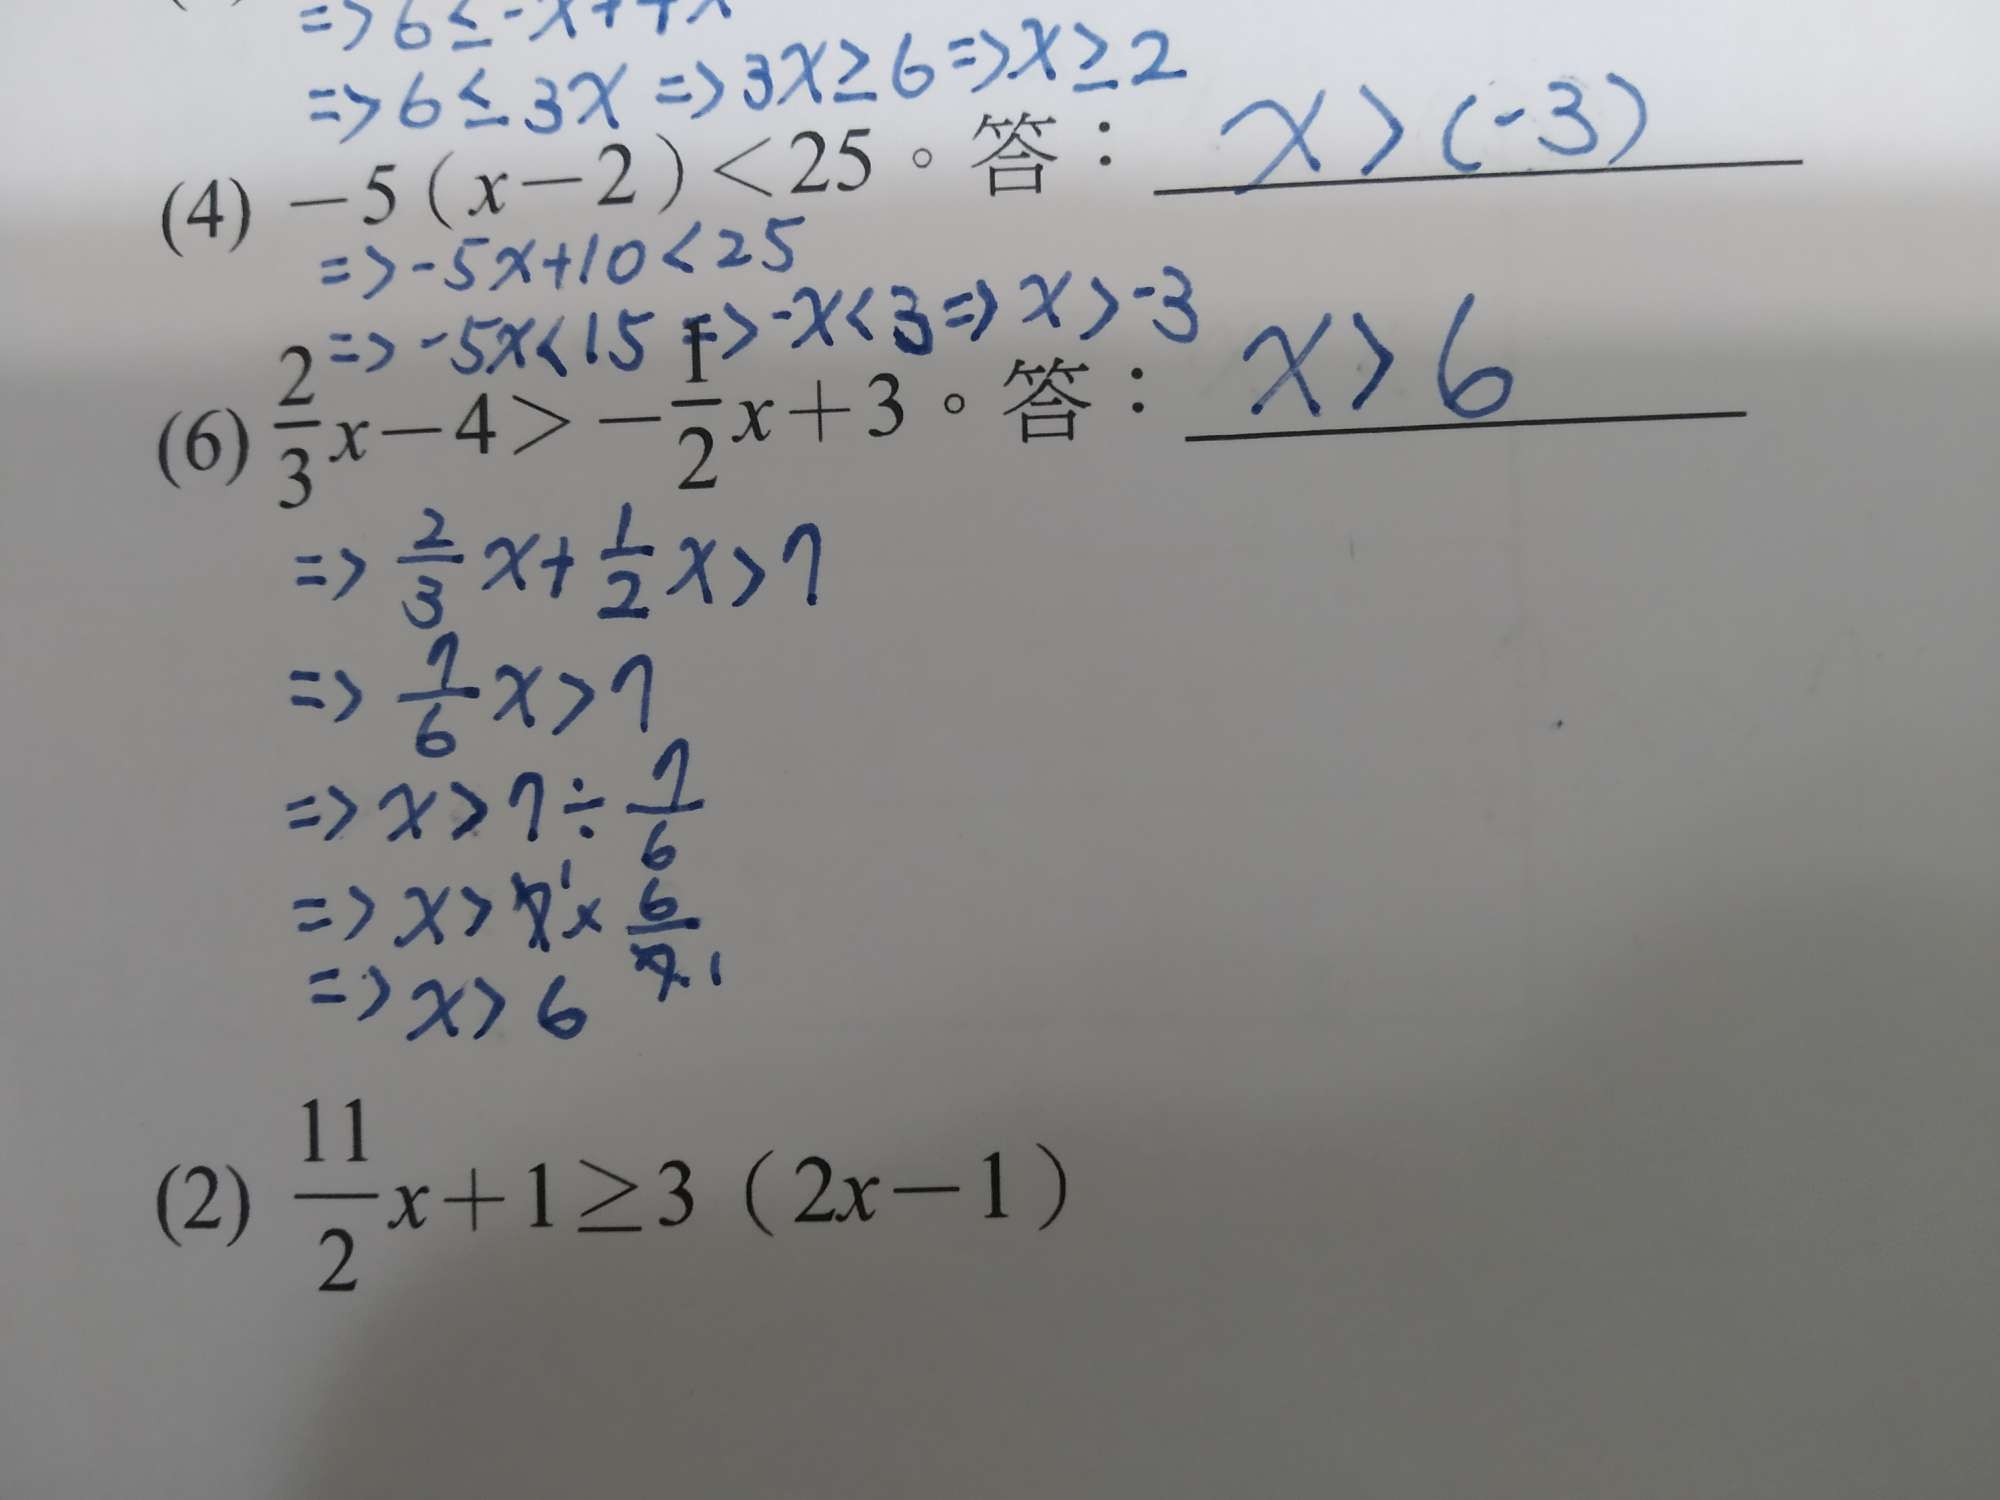 => 6 ≤ -x+4x
=> 6 ≤ 3x => 3x ≥ 6 => x ≥ 2
(4) -5(x-2)<25。答：x > (-3)
=> -5x+10 < 25
=> -5x < 15 => -x < 3 => x > -3
(6) 2/3 x-4>-1/2 x+3。答：x > 6
=> 2/3 x + 1/2 x > 7
=> 7/6 x > 7
=> x > 7 ÷ 7/6
=> x > 7 1 × 6/7 1
=> x > 6
(2) 11/2 x+1≥3（2x-1）